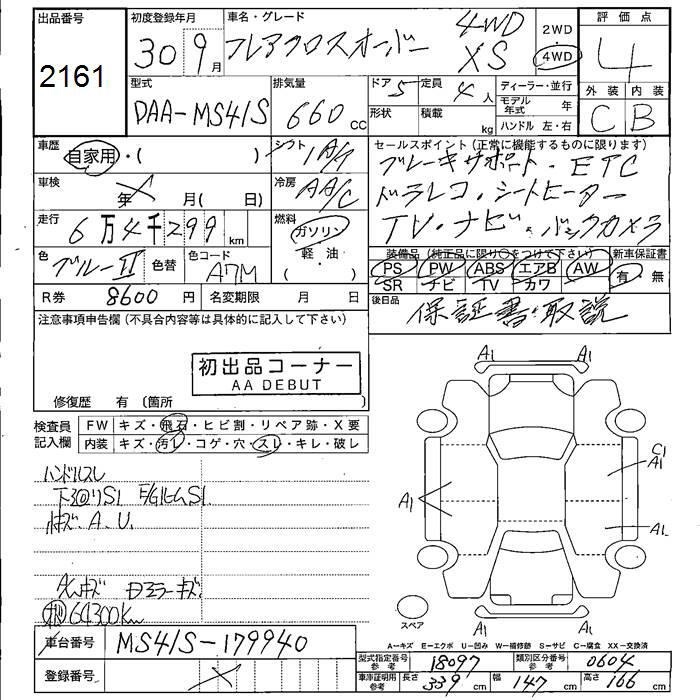 出品番号 2161
初度登録年月 30 9月
車名・グレード フレアクロスオーバー 4WD XS
2WD
4WD
評価点 4
外装 内装
C B
型式 DAA-MS41S
排気量 660 cc
ドア 5 定員 4人
形状 積載 kg
ディーラー・並行
モデル年式 年
ハンドル 左・右
車歴 自家用・( )
シフト IA/T
セールスポイント(正常に機能するものに限ります)
ブレーキサポート・ETC
ドラレコ・シートヒーター
TV・ナビ・バックカメラ
車検 年 月(日)
冷房 AA/C
走行 6万4千299 km
燃料 ガソリン
軽・油
( )
色 ブルーII 色替 色コード A7M
装備品(純正品に限り○をつけて下さい) 新車保証書
PS PW ABS エアB AW 有 無
SR ナビ TV カワ
R券 8600 円 名変期限 月 日
後日品 保証書・取説
注意事項申告欄(不具合内容等は具体的に記入して下さい)
初出品コーナー
AA DEBUT
修復歴 有(箇所 )
検査員記入欄
FW キズ・飛石・ヒビ割・リペア跡・X要
内装 キズ・汚レ・コゲ・穴・スレ・キレ・破レ
ハンドルスレ
下回りS1 E/GルームS1
キズ.A.U.
キズ ミラーキズ
64300Km
A1 A1
C1
A1
A1
A1
A1 A1
スペア
A-キズ E-エクボ U-凹み W-補修跡 S-サビ C-腐食 XX-交換済
車台番号 MS41S-179940
登録番号
型式指定番号参考 18097 類別区分番号参考 0604
車庫証明用参考 長さ 339 cm 幅 147 cm 高さ 166 cm